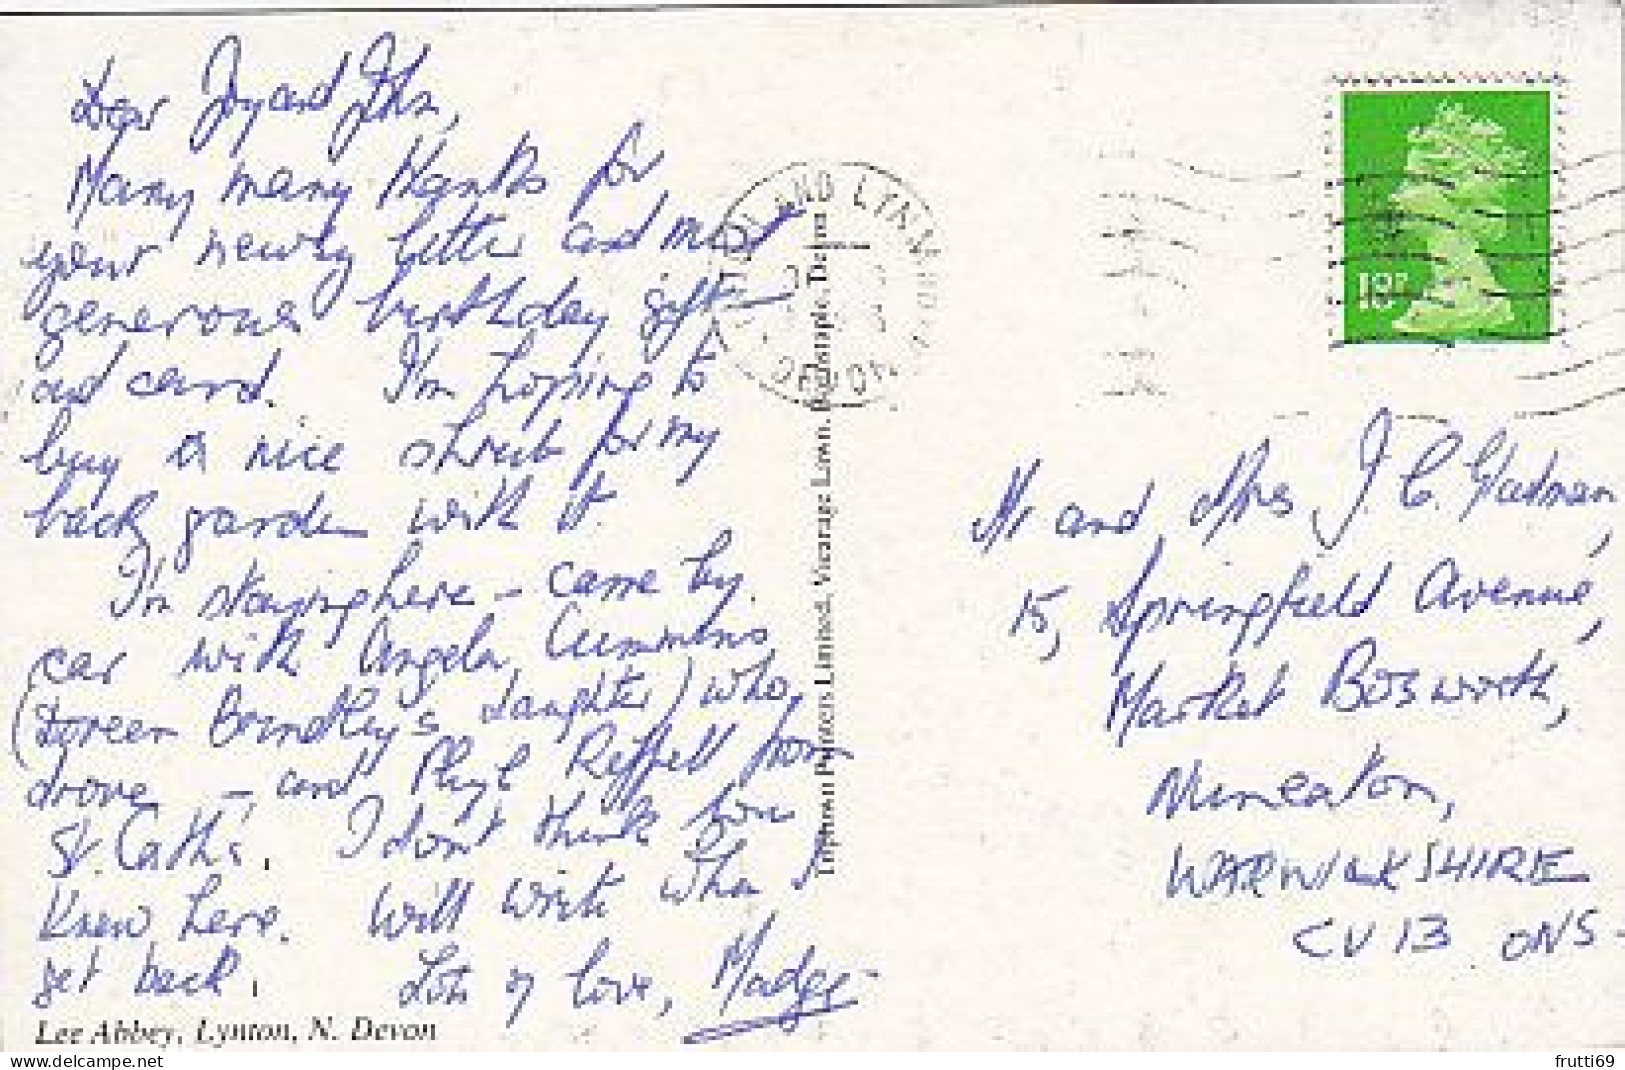 Dear Joy and John,
Many many thanks for
your newsy letter and most
generous birthday gift
and card. I'm hoping to
buy a nice shrub for my
back garden with it.
I'm staying here - came by
car with Angela Cummins
(Doreen Brindley's daughter) who
drove - and Phyl Reffell from
St. Cath's. I don't think you
know here. Will write when I
get back. Lots of love, Madge
Lee Abbey, Lynton, N. Devon
Limited, Vicarage Lawn, Barnstaple, Devon
AND LYNMOUTH
DEVON
18P
Mr and Mrs J. C. Yeadman,
15, Springfield Avenue,
Market Bosworth,
Nuneaton,
WARWICKSHIRE
CV13 ONS
frutti69